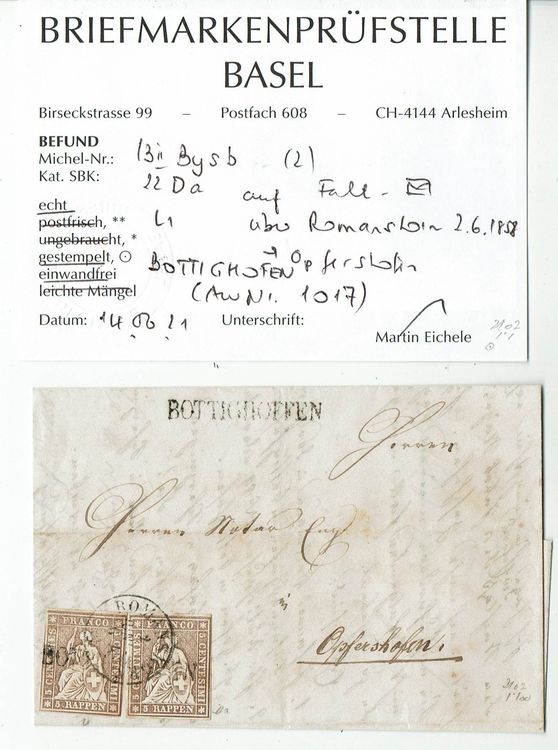 BRIEFMARKENPRÜFSTELLE
BASEL
Birseckstrasse 99 – Postfach 608 – CH-4144 Arlesheim
BEFUND
Michel-Nr.: 13 II Bysb (2)
Kat. SBK: 22 Da auf Falt-
echt
postfrisch, ** L1 über Romanshorn 2.6.1858
ungebraucht, *
gestempelt, ⊙ BOTTIGHOFEN → Opfershofen
einwandfrei
leichte Mängel (AW Nr. 1017)
Datum: 14 06 21 Unterschrift:
Martin Eichele
BOTTIGHOFFEN
Herren
Herren Notar
Opfershofen.
FRANCO
5 CENTIMES
5 CENTESIMI
5 RAPPEN
FRANCO
5 CENTIMES
5 CENTESIMI
5 RAPPEN
Da